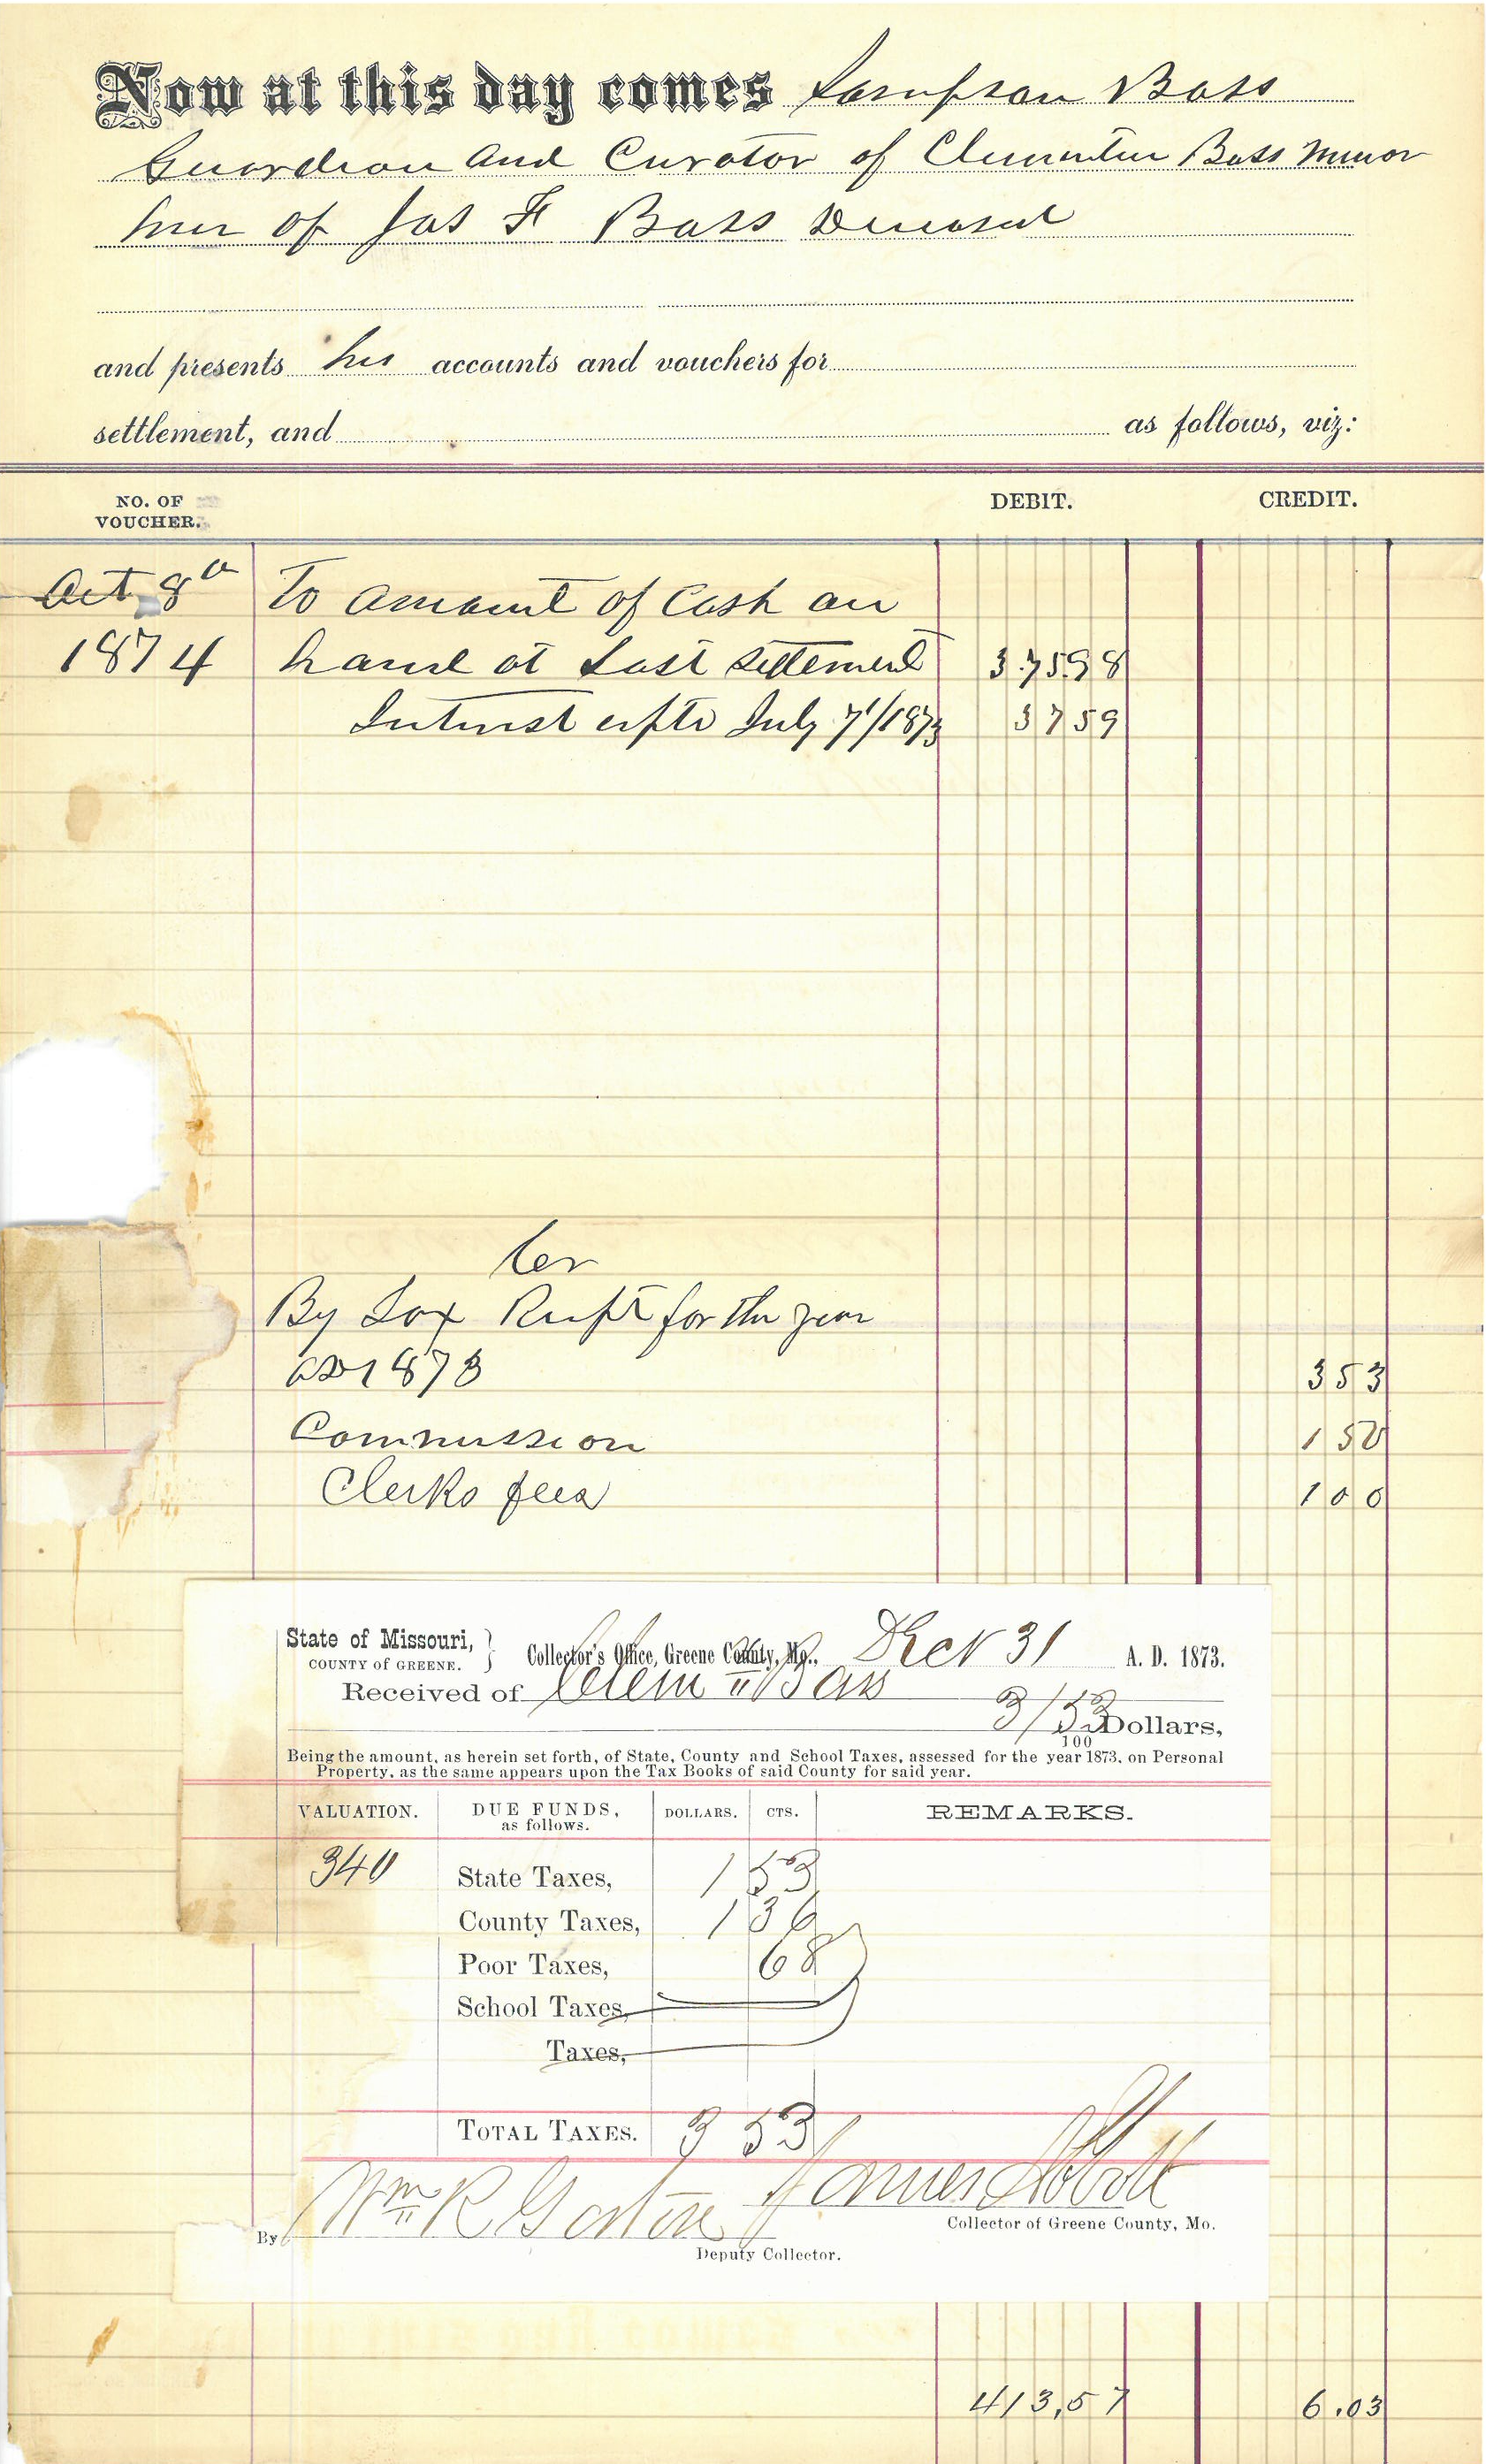 Now at this day comes Sampson Bass
Guardian and Curator of Clementine Bass Minor
heir of Jas F Bass Deceased
and presents his accounts and vouchers for
settlement, and as follows, viz:
NO. OF
VOUCHER.
DEBIT. CREDIT.
Oct 8th To amount of Cash on
1874 hand at Last Settlement 375.98
Interest afte July 7/1873 37 59
Cr
By Tax Recpt for the year
AD 1873 3 53
Commission 1 50
Clerks fees 1 00
State of Missouri, } Collector's Office, Greene County, Mo., Dec 31 A. D. 1873.
COUNTY of GREENE.
Received of Clem Bass
3/53 Dollars,
100
Being the amount, as herein set forth, of State, County and School Taxes, assessed for the year 1873, on Personal
Property, as the same appears upon the Tax Books of said County for said year.
VALUATION. DUE FUNDS, DOLLARS. CTS. REMARKS.
as follows.
340 State Taxes, 1 53
County Taxes, 1 36
Poor Taxes, 68
School Taxes,
Taxes,
TOTAL TAXES. 3 53
James Abbott
Collector of Greene County, Mo.
By Wm R
Deputy Collector.
413,57 6.03